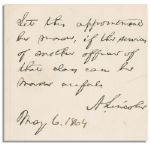 Let this appointment
be made, if the service
of another officer of
that class can be
made useful
A. Lincoln
May 6. 1864